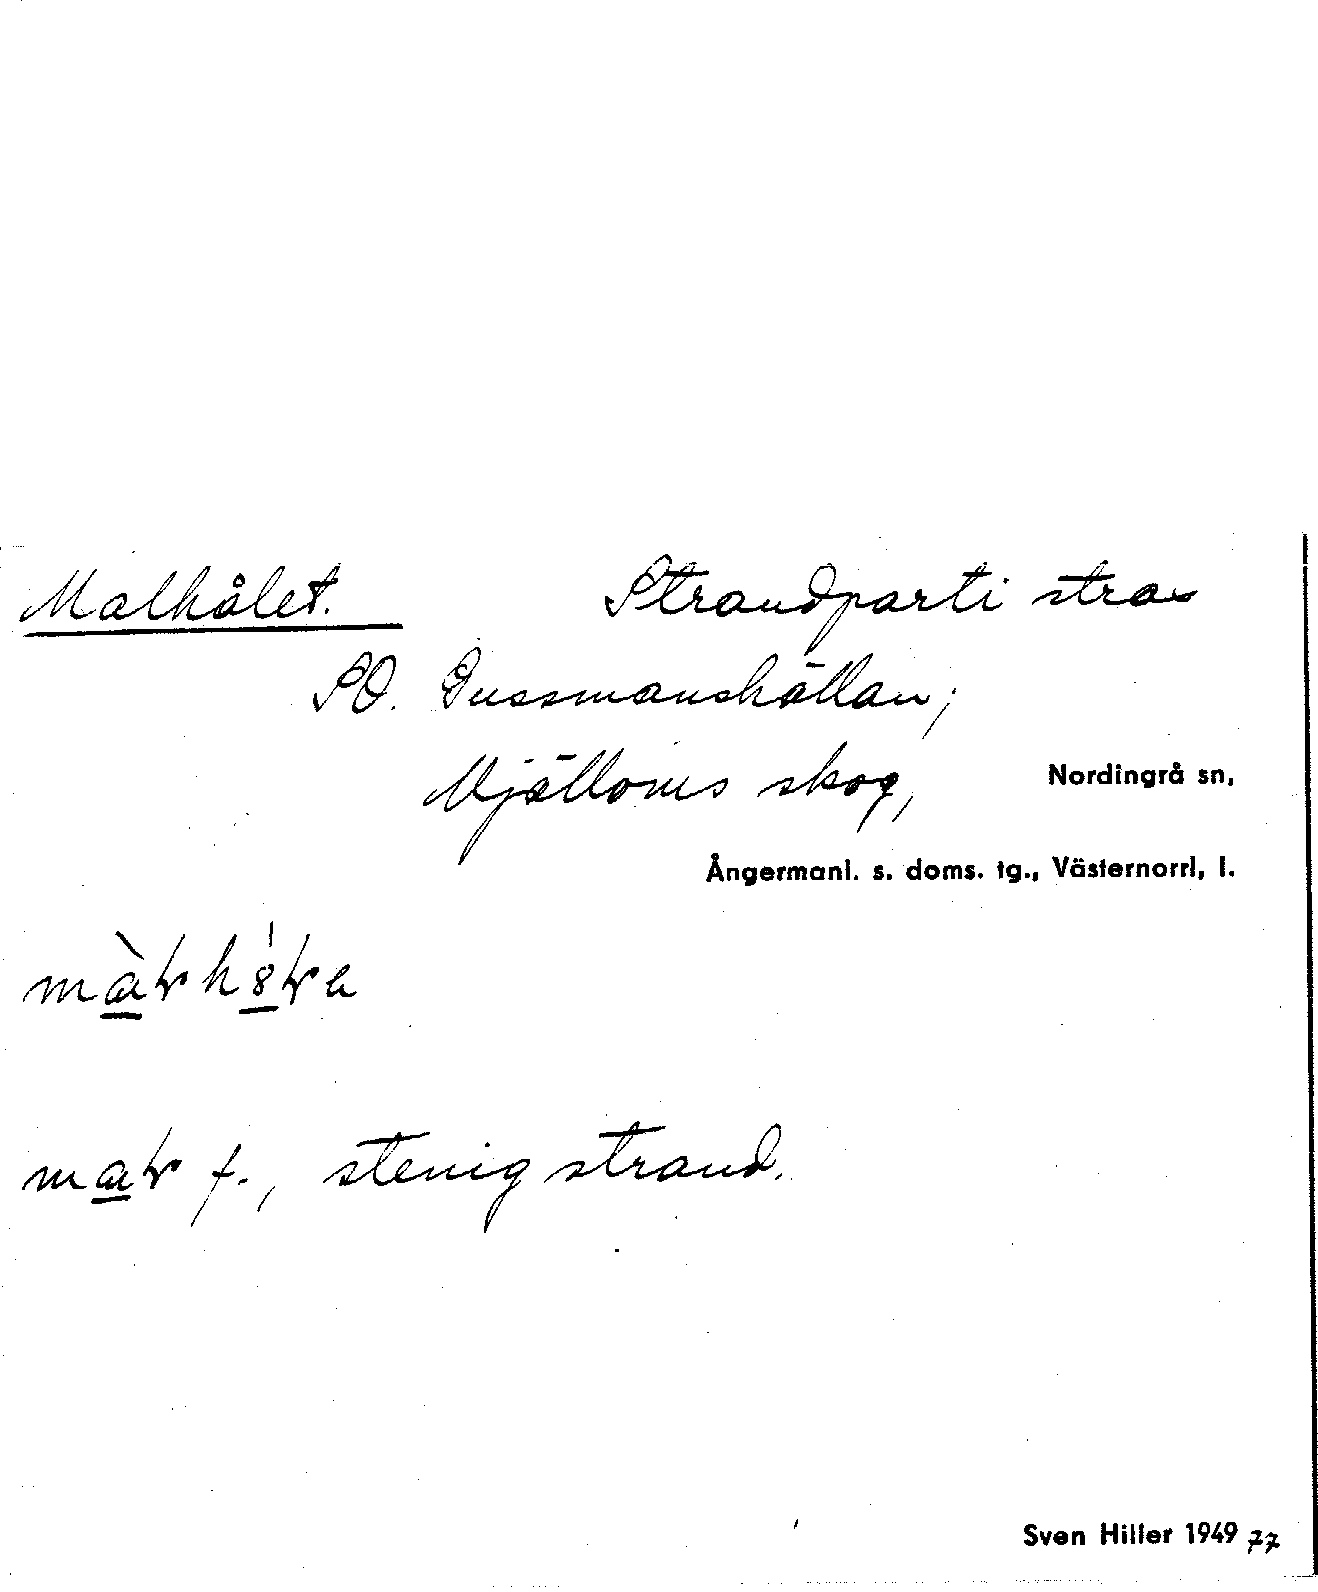 Malhålet. Strandparti strax
SO. Gussmanshällan;
Mjälloms skog, Nordingrå sn,
Ångermanl. s. doms. tg., Västernorrl, l.
f., stenig strand.
Sven Hiller 1949 77